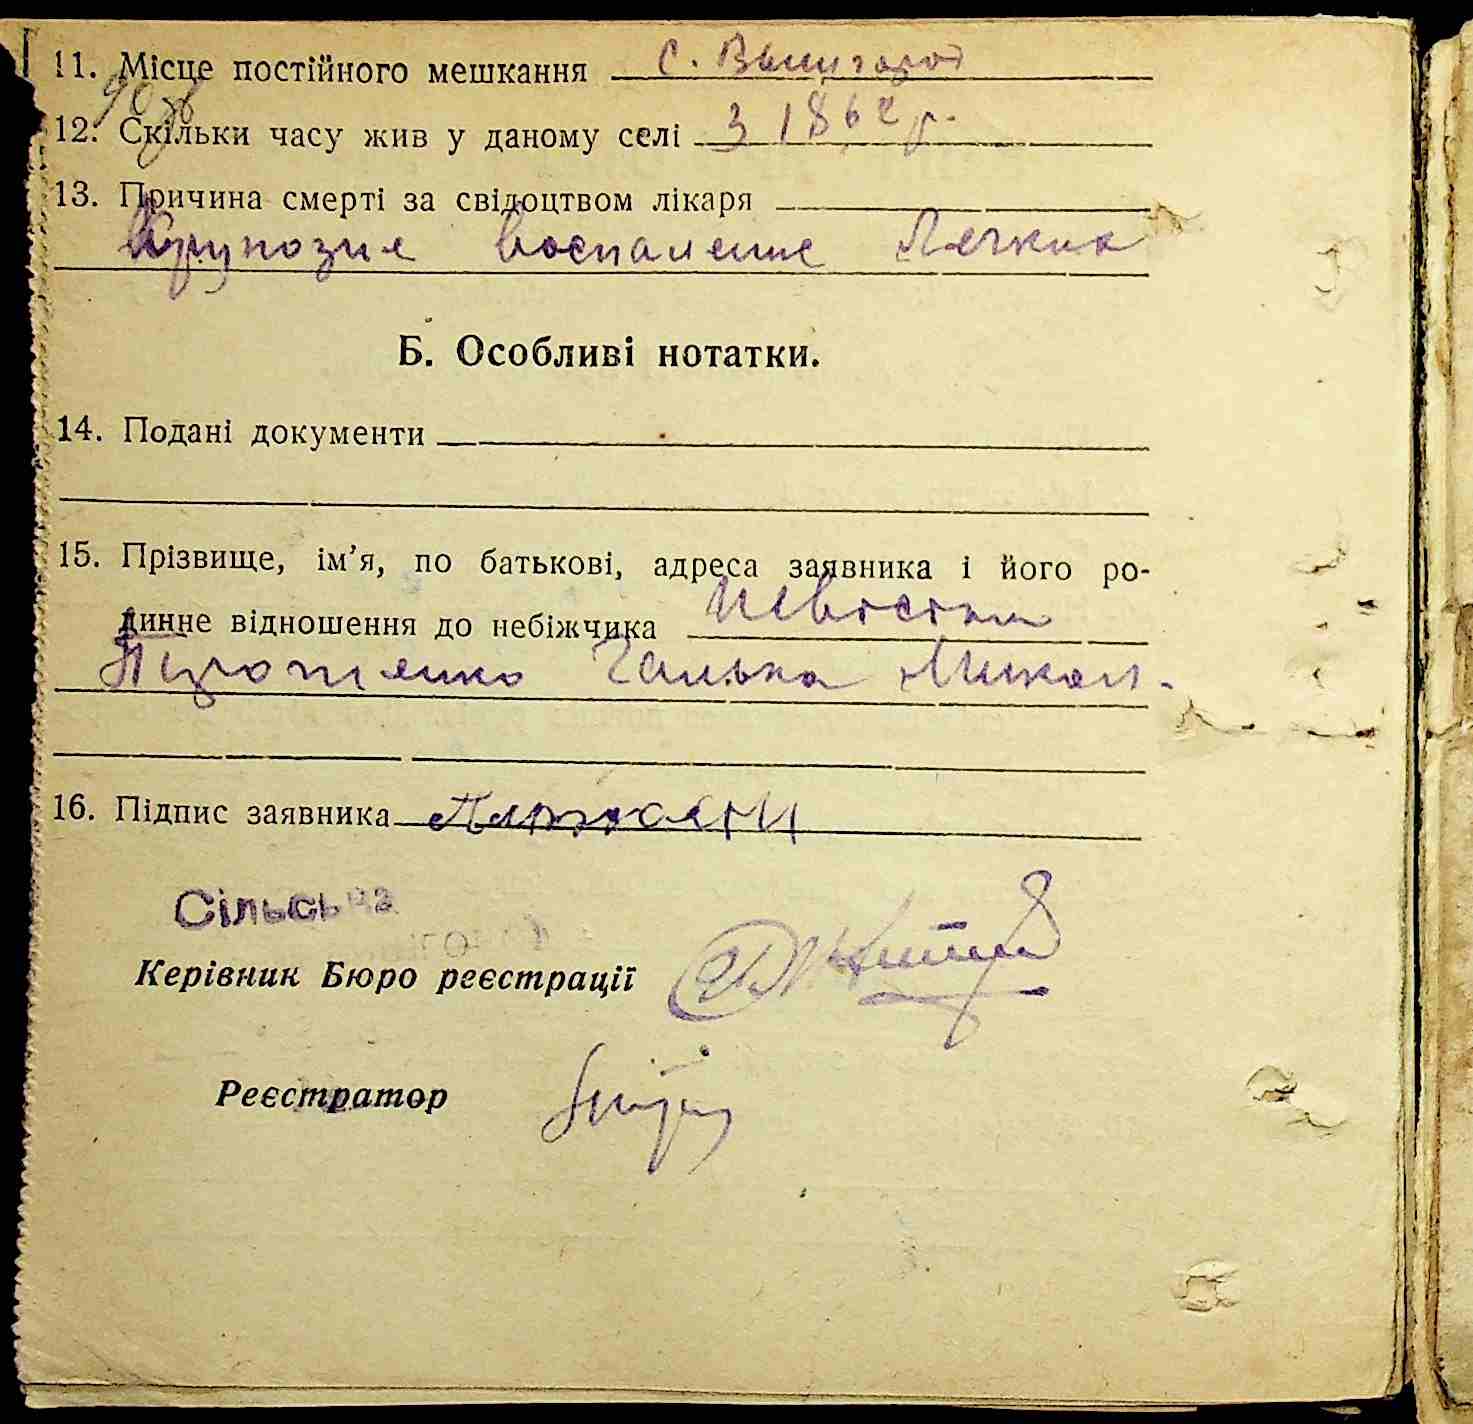 11. Місце постійного мешкання с. Вышгород
12. Скільки часу жив у даному селі З 1862 р.
13. Причина смерті за свідоцтвом лікаря
Крупозне воспаление Легких
Б. Особливі нотатки.
14. Подані документи
15. Прізвище, ім’я, по батькові, адреса заявника і його ро-
динне відношення до небіжчика невістка
Галька Микол.
16. Підпис заявника
Сільська
Керівник Бюро реєстрації
Реєстратор